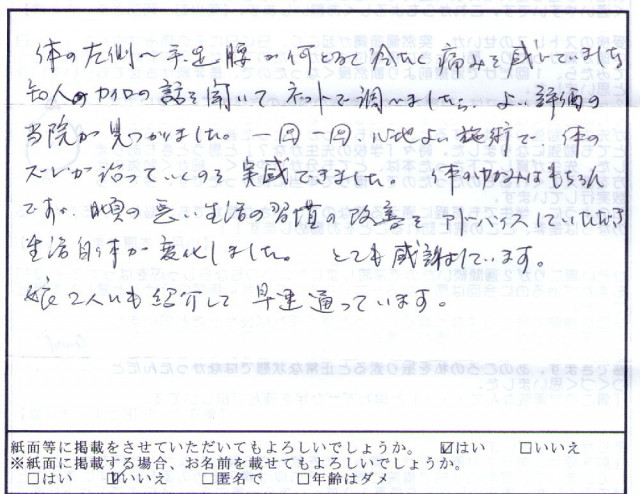 体の左側〜手足腰が何となく冷たく痛みを感じていました
知人のカイロの話を聞いてネットで調べましたら、よい評価の
当院が見つかりました。一回一回、心地よい施術で体の
ズレが治っていくのを実感できました。体のゆがみはもちろん
ですが、日頃の悪い生活の習慣の改善をアドバイスしていただき
生活自体が変化しました。とても感謝しています。
娘2人にも紹介して早速通っています。
紙面等に掲載をさせていただいてもよろしいでしょうか。 ☑はい □いいえ
※紙面に掲載する場合、お名前を載せてもよろしいでしょうか。
□はい ☑いいえ □匿名で □年齢はダメ